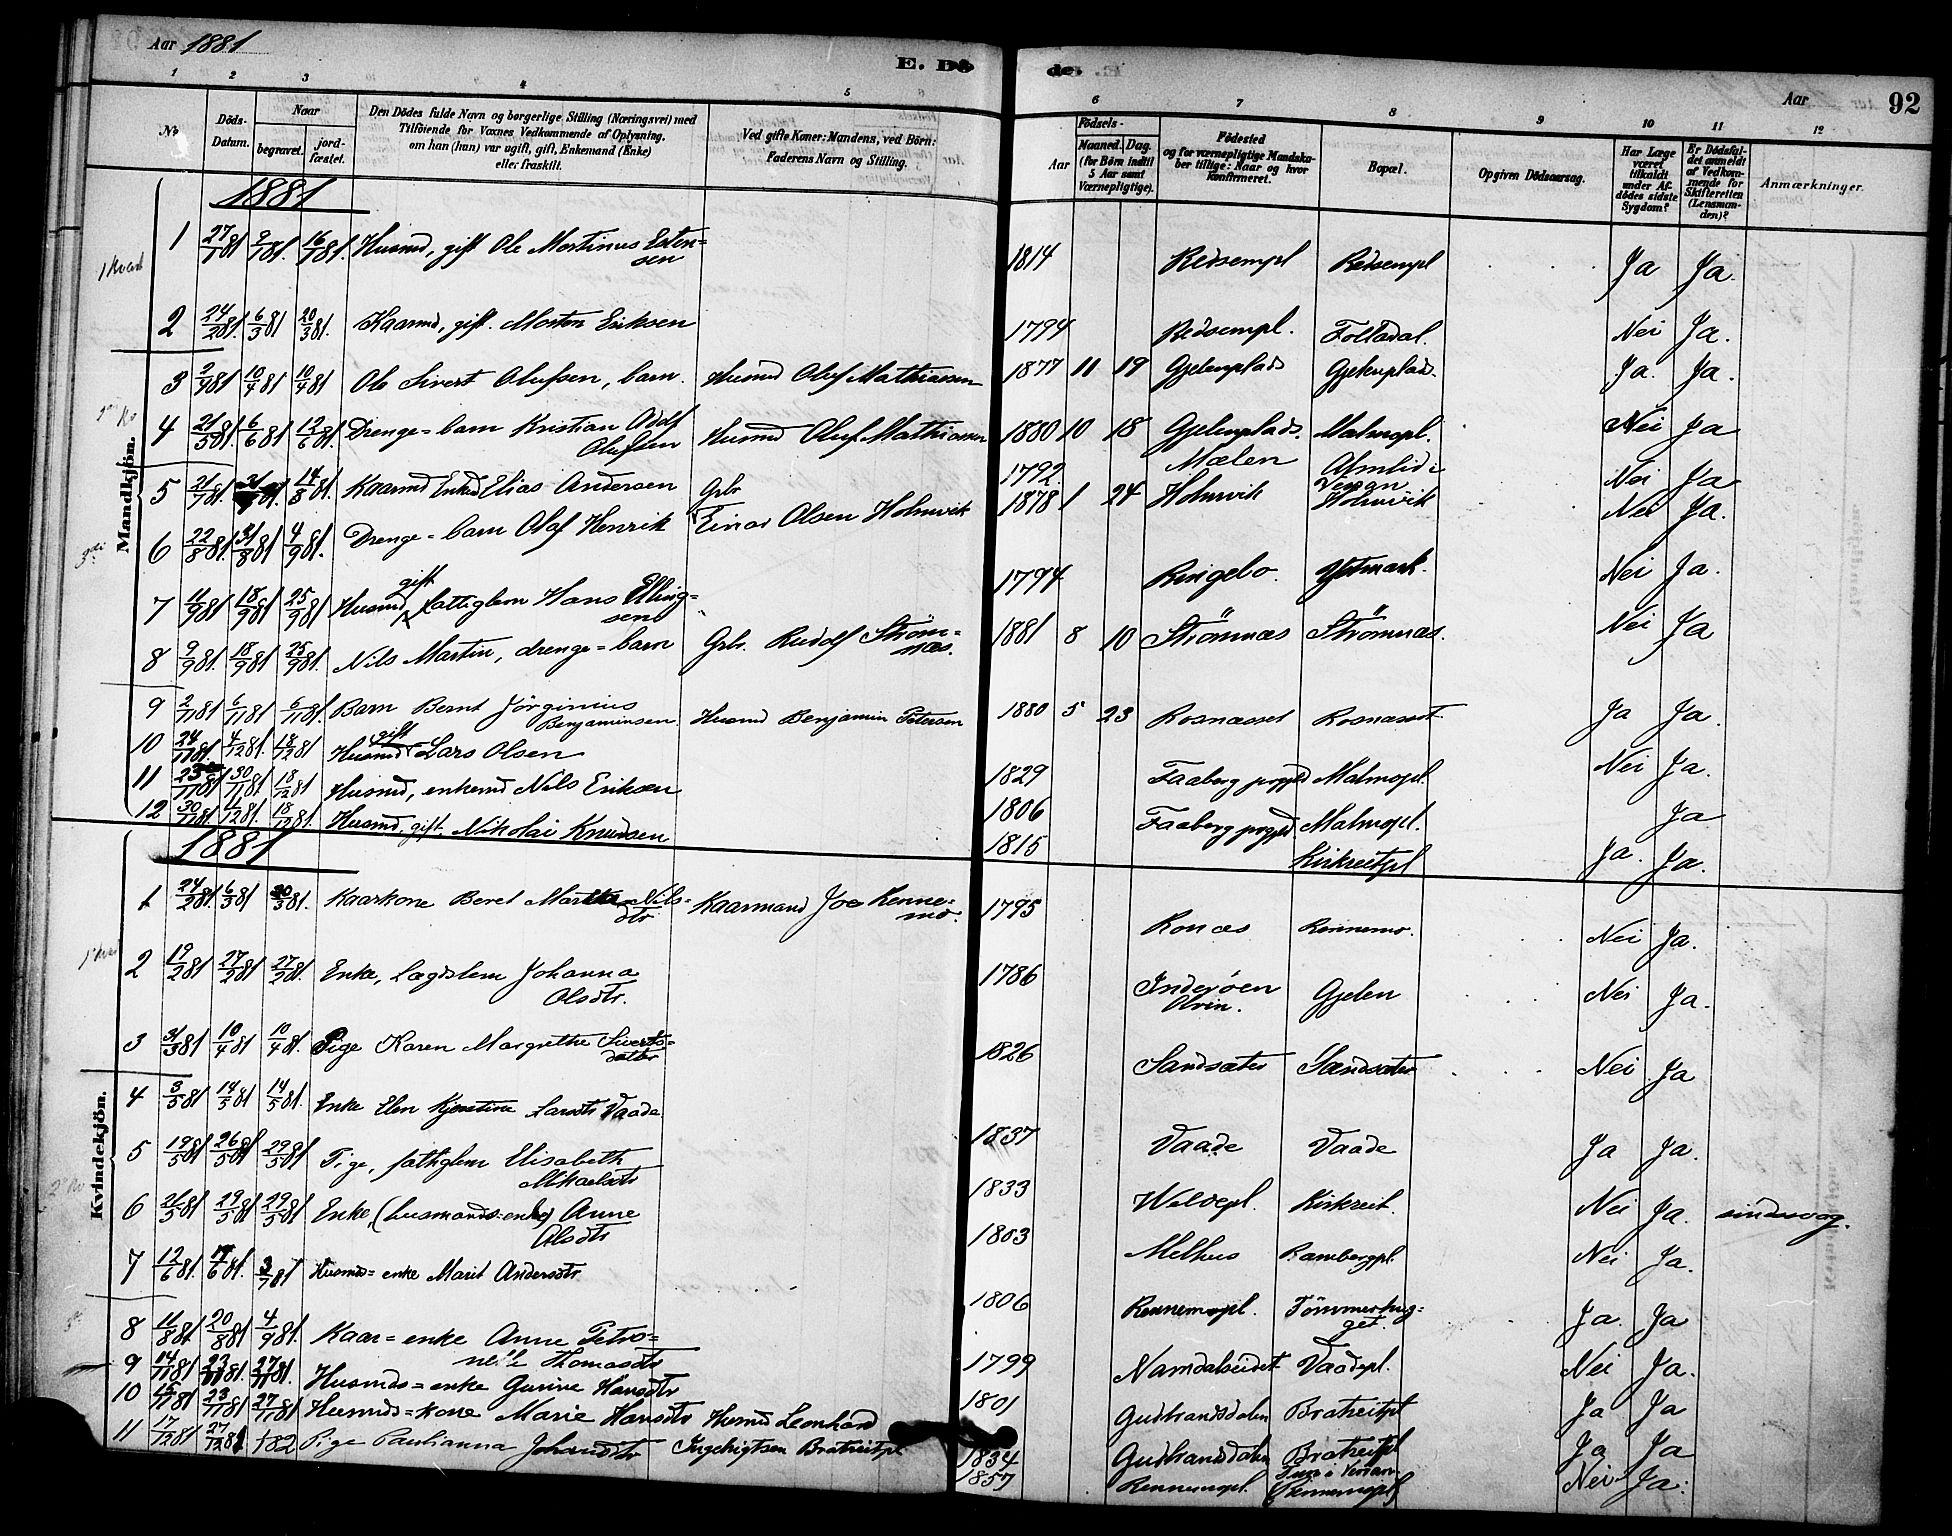 Aar 1881
E. Dö
de.
Aar
92
1 2 3 4 5
6 7 8 9 10 11 12
No
Döds-
Datum.
Naar
begravet.
jord-
fæstet.
Den Dödes fulde Navn og borgerlige Stilling (Næringsvei) med
Tilföiende for Voxnes Vedkommende af Oplysning,
om han (hun) var ugift, gift, Enkemand (Enke)
eller fraskilt.
Ved gifte Koner: Mandens, ved Börn:
Faderens Navn og Stilling.
Födsels-
Aar
Maaned.
Dag.
(for Börn indtil
5 Aar samt
Værnepligtige).
Födested
og for værnepligtige Mandska-
ber tillige: Naar og hvor
konfirmeret.
Bopæl.
Opgiven Dödsaarsag.
Har Læge
været
tilkaldt
under Af-
dödes sidste
Sygdom?
Er Dödsfal-
det anmeldt
af Vedkom-
mende for
Skifteretten
(Lensman-
den)?
Anmærkninger.
Mandkjön.
1881
1 27/1 81 9/1 81. 16/1 81. Husmd, gift Ole Martinus Esten-
sen 1814 Redsempl Redsempl Ja Ja.
2 24/2 81. 6/3 81 20/3 81. Kaarmd, gift. Morten Eriksen 1794 Redsempl. Folladal. Nei Ja.
3 2/4 81 10/4 81 10/4 81 Ole Sivert Olufsen, barn. Husmd Oluf Mathiassen 1877 11 19 Gjelenplads Gjelenplads. Ja. Ja.
4 21/5 81. 6/6 81 12/6 81. Drenge=barn Kristian Adolf
Olufsen Husmd Oluf Mathiassen 1880 10 18 Gjelenplads. Malmopl. Nei Ja
5 21/7 81. 31/7 81. 14/8 81. Kaarmd Enkmd Elias Andersen 1792 Mælen Almlid i
Verran Nei Ja
6 22/8 81. 31/8 81 4/9 81. Drenge=barn Olaf Henrik Gbr
Einar Olsen Holmvik 1878 1 24 Holmvik Holmvik Nei Ja.
7 11/9 81 18/9 81 25/9 81. Husmd, gift fattiglem Hans Elling-
sen 1794 Ringebo. Ystmark. Nei Ja.
8 9/9 81. 18/9 81. 25/9 81. Nils Martin, drenge=barn Gbr. Rudolf Strøm=
næs. 1881 8 10 Strömnæs Strömnæs. Nei Ja
9 2/11 81 6/11 81 6/11 81. Barn Bernt Jörginius
Benjaminsen. Husmd Benjamin Petersen 1880 5 23 Rosnæsset Rosnæsset. Ja Ja.
10 24/11 81. 4/12 81. 18/12 81 Husmd gift Lars Olsen 1829 Faaberg prgjld Malmopl. Nei Ja.
11 23/11 81 30/11 81 18/12 81 Husmd, enkemd Nils Eriksen 1806 Faaberg prgjld Malmopl. Ja
12 30/11 81 11/12 81. 18/12 81. Husmd, gift. Nikolai Knudsen 1815 Kirkreitpl Ja. Ja.
Kvindekjön.
1881
1 24/2 81. 6/3 81 20/3 81. Kaarkone Beret Martha Nils-
dtr Kaarmand Joe Renne=
mo. 1795 Ronæs Rennemo. Nei Ja.
2 19/2 81 27/2 81 27/2 81. Enke, Lægdslem Johanna
Olsdtr. 1786 Inderöen
Olvin. Gjelen Nei Ja.
3 31/3 81 10/4 81 10/4 81. Pige Karen Margrethe Siverts=
dater 1826 Sandsæter Sandsæter Nei Ja
4 3/5 81. 14/5 81 14/5 81. Enke Elen Kjerstine Larsdtr Vaade 1837 Vaade Vaade Ja Ja.
5 19/5 81 26/5 81 29/5 81 Pige, fattiglem Elisabeth
Mikaelsdtr 1833 Woldepl. Kirkreit. Nei Ja. sindssvag.
6 26/5 81 29/5 81 29/5 81 Enke (husmands-enke) Anne
Olsdtr 1803 Melhus Rambergpl. Nei Ja.
7 12/6 81. 19/6 81. 3/7 81 Husmds=enke Marit Andersdtr 1806 Rennemopl. Tömmerhug=
get. Ja. Ja
8 11/8 81. 20/8 81 4/9 81. Kaar=enke Anne Petro=
nelle Thomasdtr 1799 Namdalseidet Vaadepl. Nei Ja.
9 14/11 81 23/11 81. 27/11 81. Husmds=enke Gurine Hansdtr 1801 Gudbrandsdalen Bratreitpl Ja Ja
10 15/11 81 23/11 81 27/11 81 Husmds=kone Marie Hansdtr Husmd Leonhard
Ingebrigtsen Bratreitpl 1834 Gudbrandsdalen Bratreitpl Ja Ja
11 17/12 81 27/12 81 1/1 82 Pige Paulianna Johansdtr 1857 Rennemopl. Tun i Verran
(Rennemopl) Nei Ja.